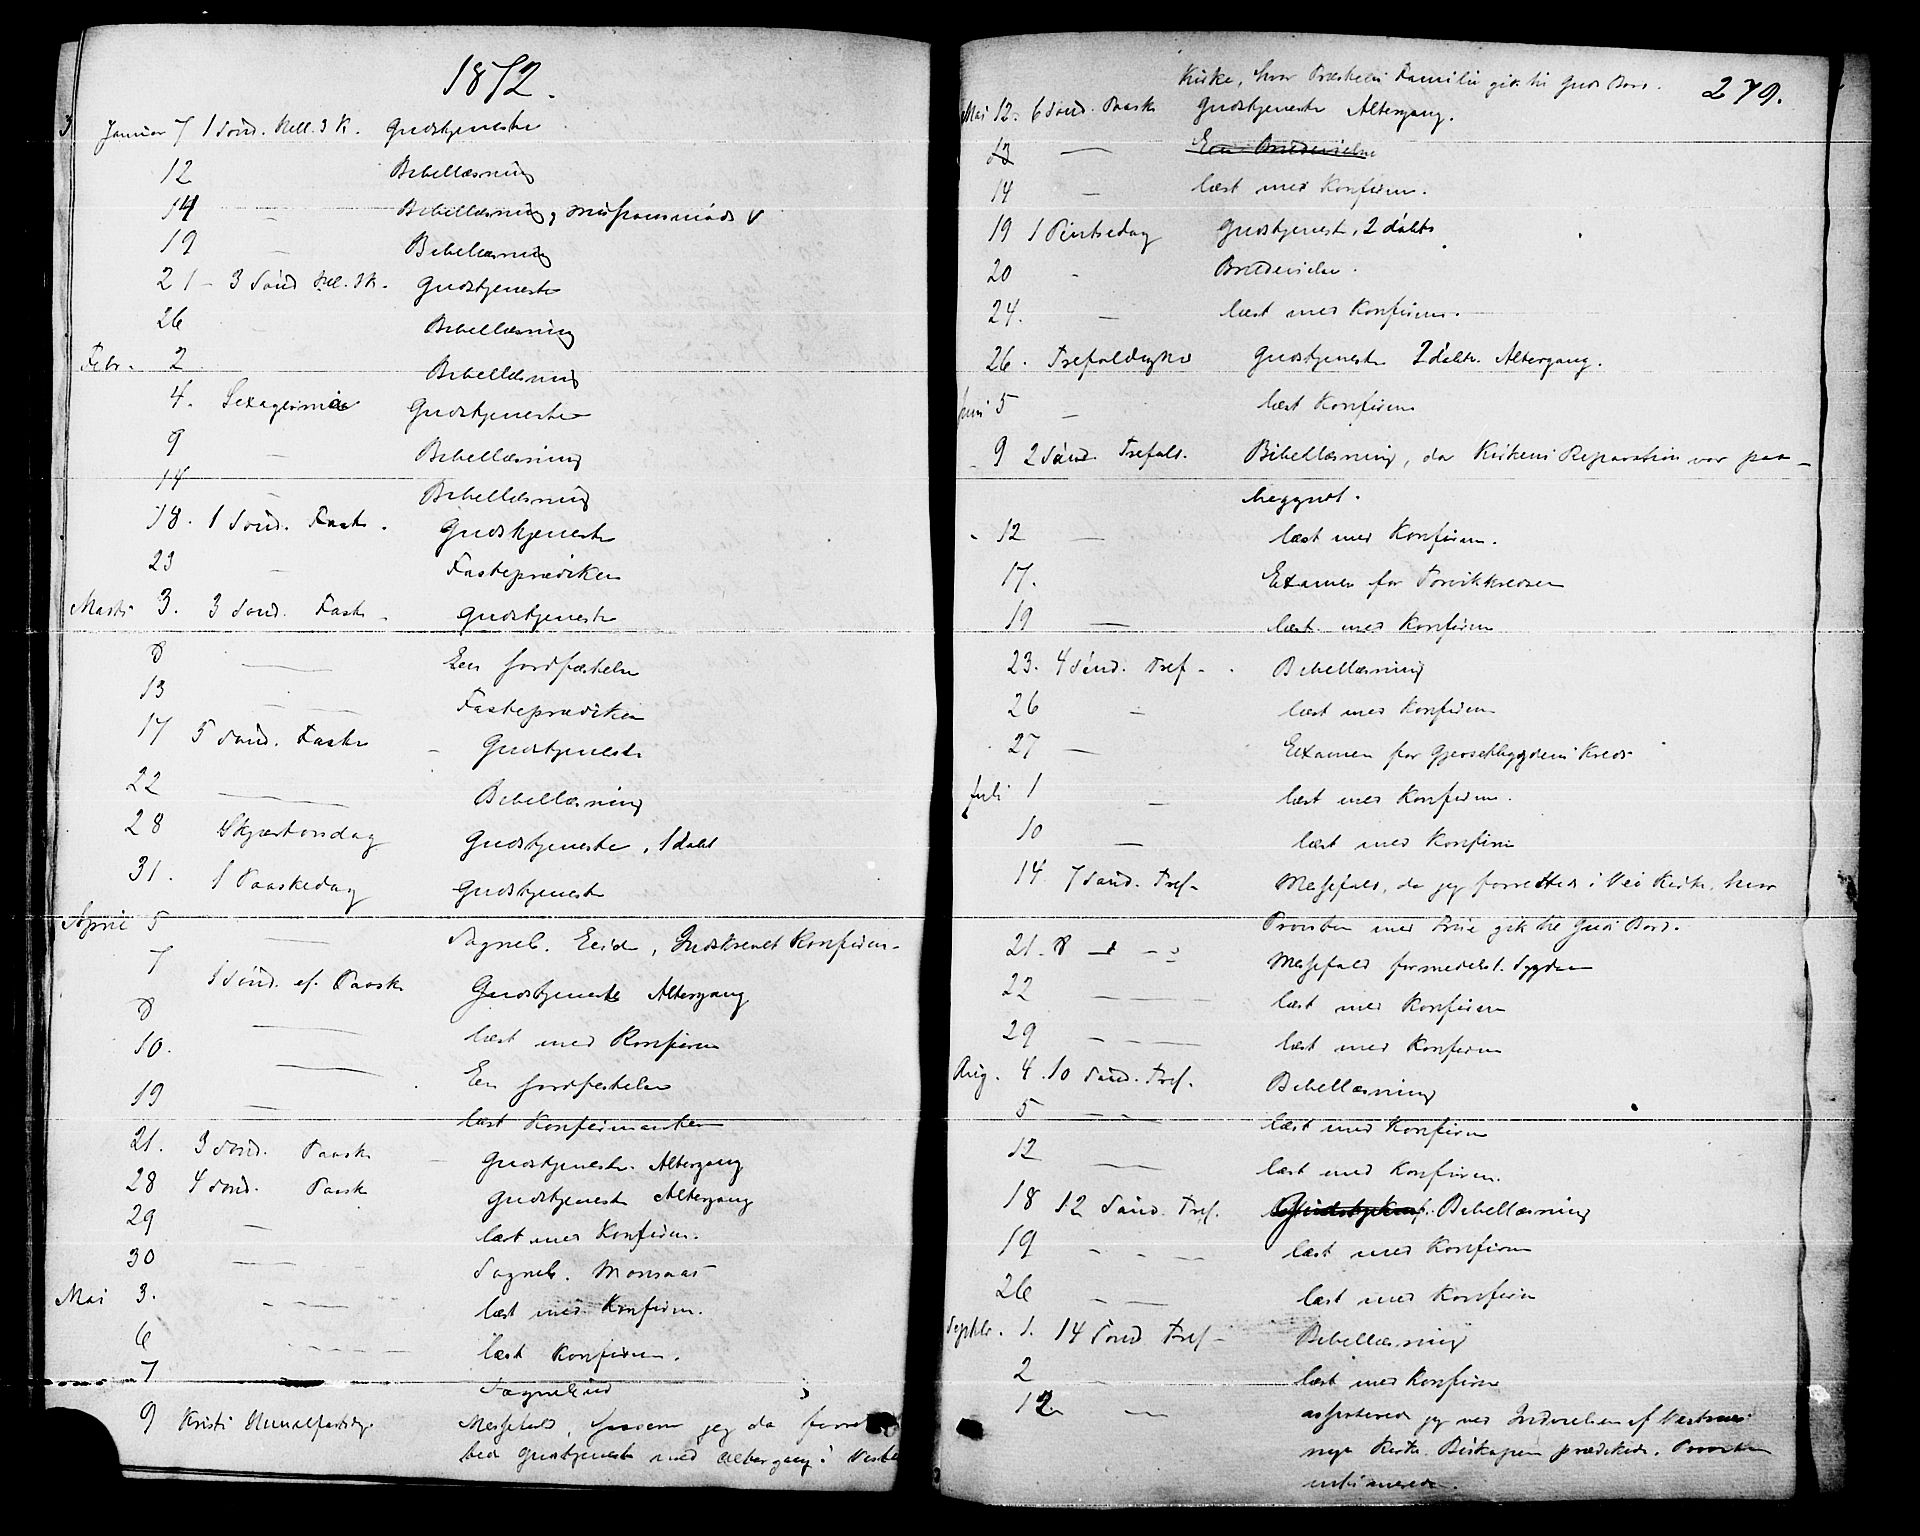 1872.
Januar 7 1 Sønd. Hell. 3 K. Gudstjeneste
12 Bibellæsning
14 - Bibellæsning, Missionsmøde
19 - Bibellæsning
21 - 3 Sønd Hel. 3 K. Gudstjeneste
26 - Bibellæsning
Febr. 2 Bibellæsning
4. Sexagesima Gudstjeneste
9 - Bibellæsning
14 - Bibellæsning
18. 1 Sønd. Faste. Gudstjeneste
23 - Fasteprædiken
Marts 3. 3 Sønd. Faste - Gudstjeneste
8 — Een Jordfæstelse
13 - Fasteprædiken
17 5 Sønd. Faste - Gudstjeneste
22 — Bibellæsning
28 Skjærtorsdag Gudstjeneste, 1 døbt
31. 1 Paaskedag Gudstjeneste
April 5 — Sogneb. Eid, Indskrevet Konfirm-
7 1 Sønd. ef. Paaske Gudstjeneste Altergang
8 — læst med Konfirm
10. — Een Jordfestelse
19 — læst Konfirmanter
21. 3 Sønd. Paaske - Gudstjeneste. Altergang
28 4 Sønd. Paask Gudstjeneste Altergang
29 — læst med Konfirm.
30 — Sogneb. Monsaas
Mai 3. - — læst med Konfirm.
6 - - - læst Konfirm.
7 Sognebud
9 Kristi Himmelfartsdag. Messefald, saasom jeg da forret
tede Gudstjeneste med Altergang i
279.
Kirke, hvor Præstens Familie gik til Guds Bord.
Mai 12. 6 Sønd. Paask Gudstjeneste Altergang.
13 — Een Brudevielse
14 — læst med Konfirm.
19 1 Pintsedag Gudstjenest, 2 døbte
20 - Brudevielse.
24. — læst med Konfirm.
26. Trefoldighd Gudstjeneste 2 døbte. Altergang.
Juni 5 — læst Konfirm
- 9 2 Sønd. Trefold. Bibellæsning, da Kirkens Reparation var paa-
begyndt.
- 12 — læst med Konfirm.
17. Examen for Torvikkredsen
19 — læst med Konfirm
23. 4 Sønd. Tref - . Bibellæsning
26 — læst med Konfirm
27 — Examen for Gjersetbygdens Kreds
Juli 1 — læst med Konfirm.
10 — læst med Konfirm
14 7 Sønd. Tref- Messefald, da jeg forrettede i Veø Kirke, hvor
Provsten med Frue gik til Guds Bord.
21. 8 — - - Messefald formedelst Sygdom
22 — læst med Konfirm
29 - - — læst med Konfirm
Aug. 4. 10 Sønd. Tref. Bibellæsning
5 — — læst med Konfirm
12 — — læst med Konfirm.
18 12 Sønd. Tref. Bibellæsning
19 - - — læst med Konfirm
26 - — læst med Konfirm
Septbr. 1. 14 Sønd Tref - Bibellæsning
2 - læst med Konfirm
12 — assisterede jeg ved Indvielsen af Vestnæs
nye Kirke. Biskopen prædikede. Provsten
intimerede.